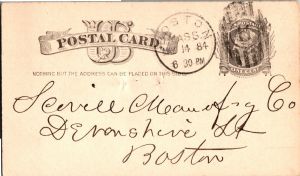 BOSTON
MASS.
14 84
6 30 PM
POSTAL CARD
NOTHING BUT THE ADDRESS CAN BE PLACED ON THIS SIDE.
Scovill Manufg Co
Devonshire St
Boston